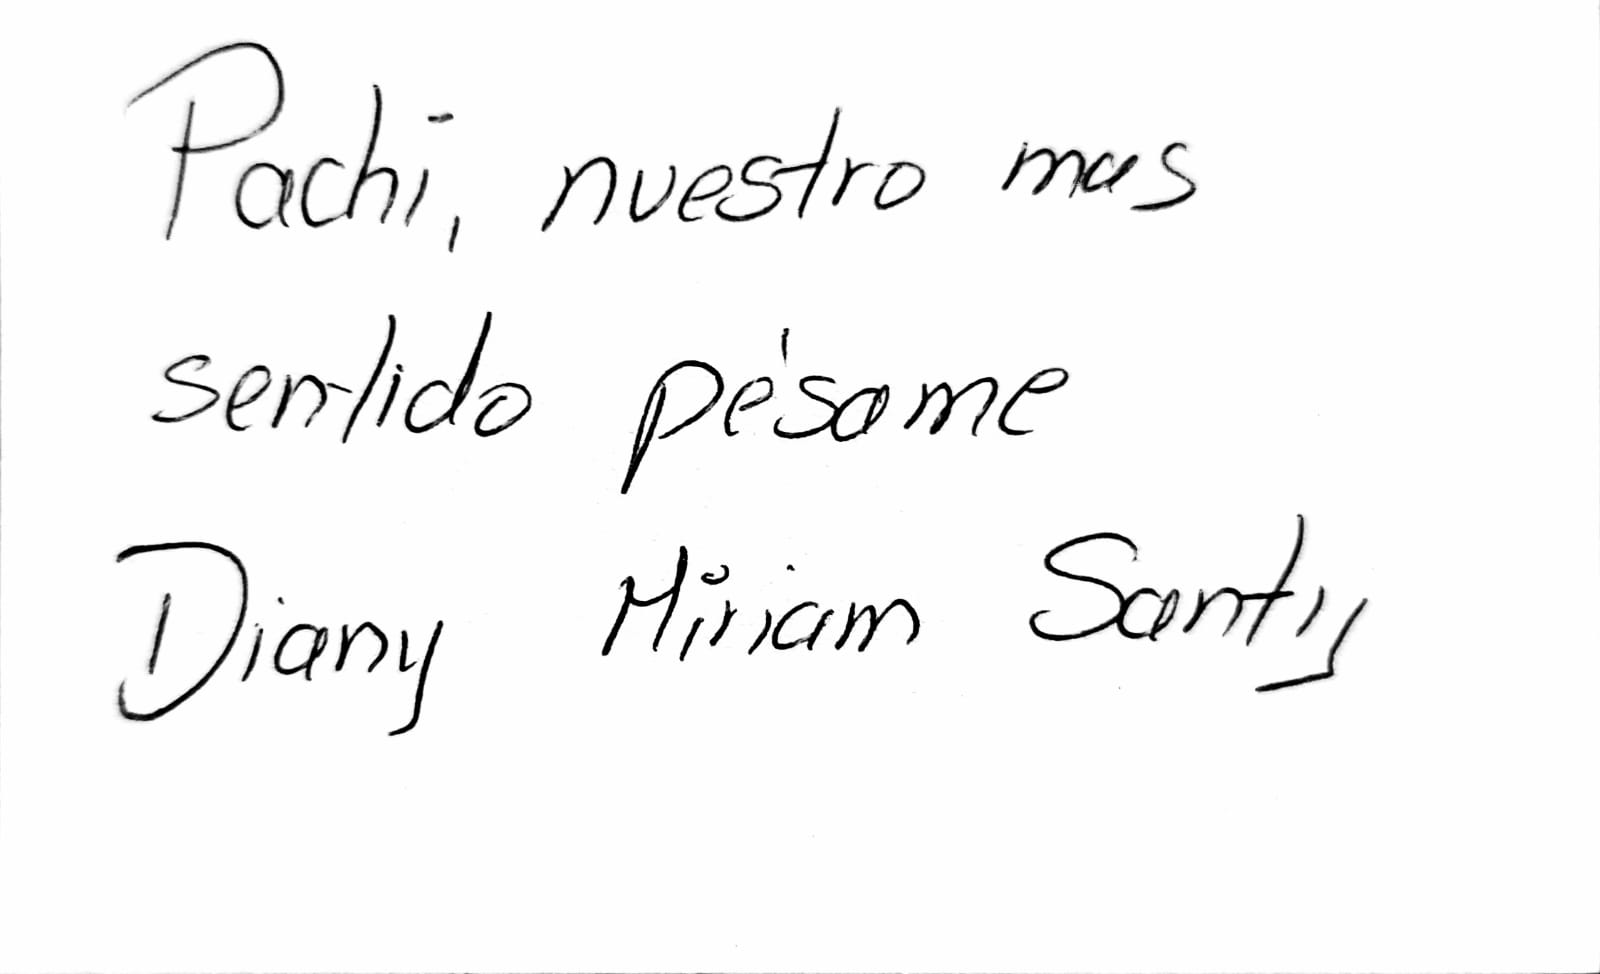 Pachi, nuestro mas
sentido pésame
Diany Miriam Santy